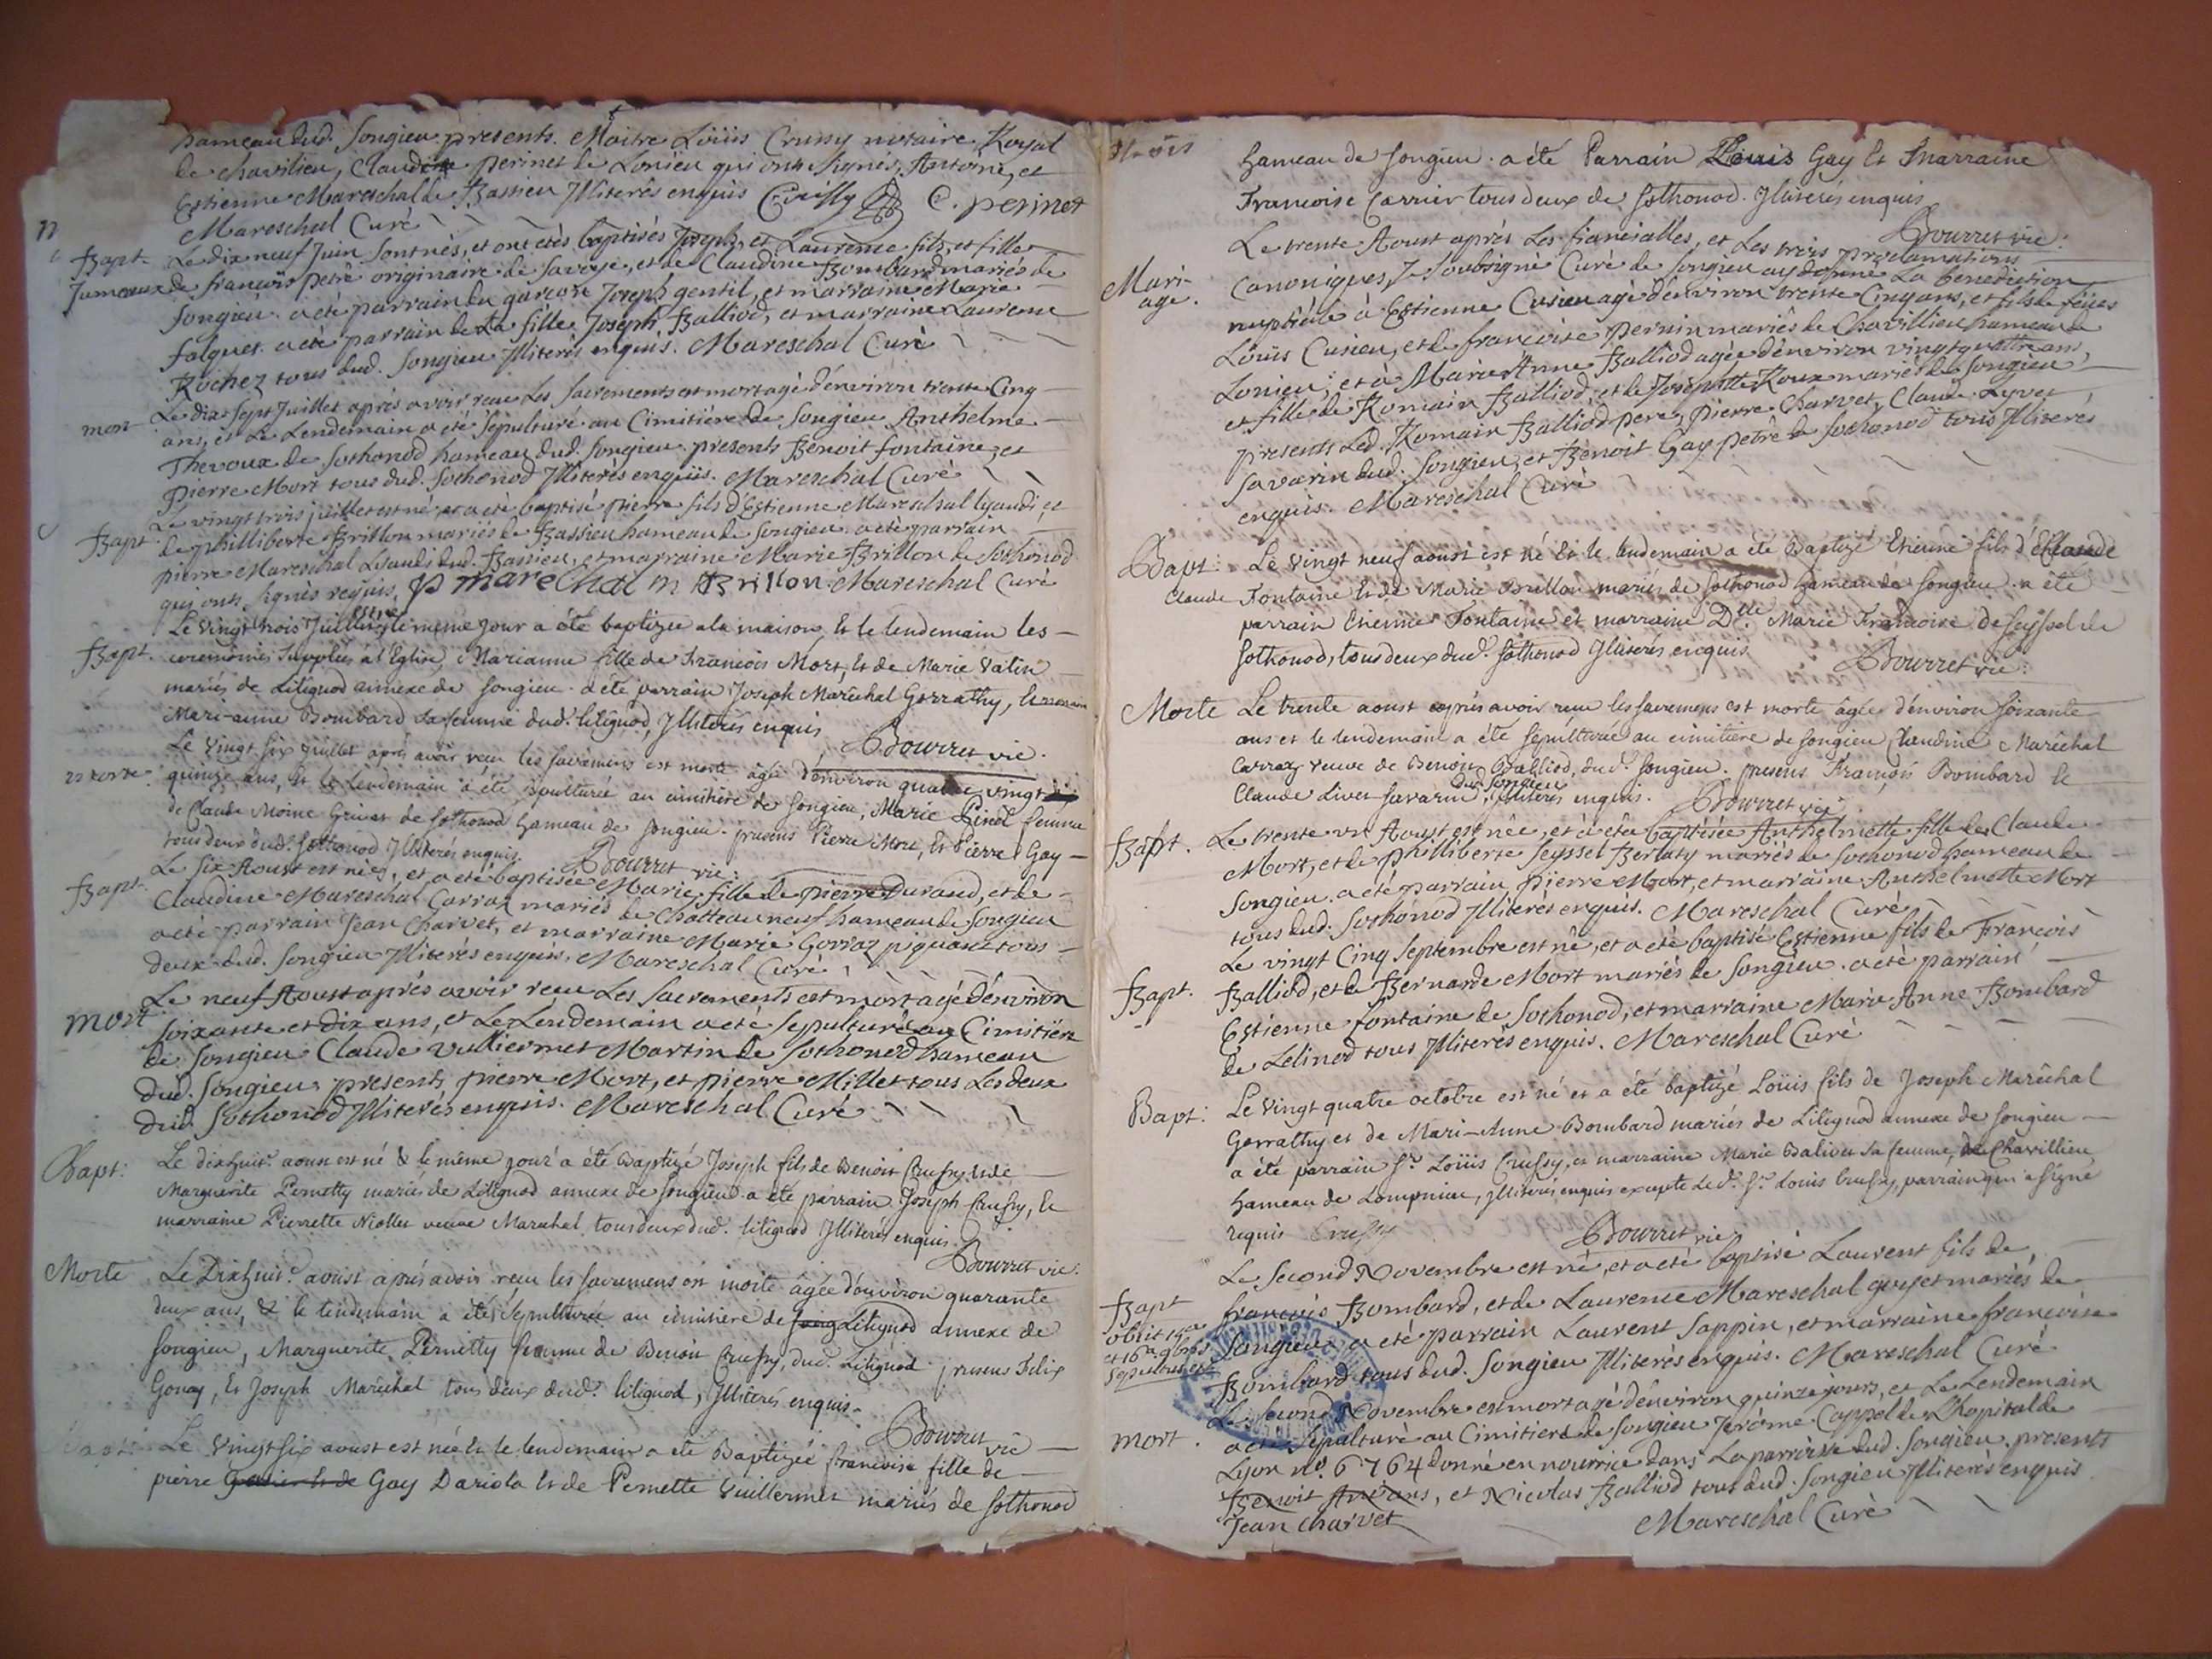 hameau dud. Songieu presents Maitre Loüis Crussy notaire Royal
de chavilieu, Claudine perinet de Lonieu qui ont signés, Antoine, et
Estienne Mareschal de Bassieu Illiterés enquis Crussy C. perinet
Mareschal Curé
Bapt. Le dix neuf Juin sont nés, et ont etés baptisés Joseph, et Laurence fils, et fille
Jumeaux de françois petré originaire de Savoye, et de Claudine Bombard mariés de
Songieu. a eté parrain du garçon Joseph gentil, et marraine Marie
falquet. a eté parrain de La fille Joseph Balliod, et marraine Laurence
Rochez tous dud. Songieu Illiterés enquis. Mareschal Curé
mort Le dix sept Juillet aprés avoir reçu Les Sacrements est mort agé d'environ trente Cinq
ans, et Le Lendemain a eté Sépulturé au Cimitiére de Songieu Anthelme
Thevoux de Sothonod hameau dud. Songieu. presents Benoit fontaine, et
Pierre Mort tous dud. Sothonod Illiterés enquis. Mareschal Curé
Bapt. Le vingt trois juillet est né et a eté baptisé pierre fils d'Estienne Mareschal Lyaudi, et
de philliberte Brillon mariés de Bassieu hameau de Songieu. a eté parrain
pierre Mareschal Lyaudi dud. Bassieu, et marraine Marie Brillon de Sothonod
qui ont signés requis. P marechal m Brillon Mareschal Curé
Le vingt trois Juillet est née
et le même jour a été baptizée a la maison et le lendemain les
Bapt. ceremonies supplées à l'Eglise, Marianne fille de François Mort, et de Marie Vatin
mariés de Lilignod annexe de Songieu. a été parrain Joseph Maréchal Gerrathy, et marraine
Mari-anne Bombard sa femme dud. lilignod, Illiterés enquis
Bourret vic.
Le vingt six juillet aprés avoir reçu les sacremens est morte âgée d'environ quatre vingt
morte quinze ans, et le Lendemain a été sépulturée au cimitiére de Songieu, Marie Pinet femme
de Claude Moine Grivat de Sothonod hameau de Songieu. presens Pierre Mort, et Pierre Gay
tous deux dud. Sothonod Illiterés enquis. Bourret vic:
Bapt. Le Six Aoust est née, et a eté baptisée Marie fille de pierre Durand, et de
Claudine Mareschal Carraz mariés de Chatteauneuf hameau de Songieu
a eté parrain Jean Charvet, et marraine Marie Gorraz piquand tous
deux dud. Songieu Illiterés enquis. Mareschal Curé
Le neuf Aoust aprés avoir reçu Les Sacrements est mort agé d'environ
mort soixante et dix ans, et Le Lendemain a eté Sepulturé au Cimitiére
de Songieu Claude Vulliermet Martin de Sothonod hameau
dud. Songieu, presents pierre Mort, et pierre Millet tous Les deux
dud. Sothonod Illiterés enquis. Mareschal Curé
Bapt: Le dixhuit aoust est né & le même jour a été Baptizé Joseph fils de Benoit Crussy, et de
Marguerite Pernetty mariés de Lilignod annexe de Songieu. a été parrain Joseph Crussy, et
marraine Pierrette Niollet veuve Maréchal, tous deux dud. lilignod Illiterés enquis.
Bourret vic:
Morte Le Dixhuit aoust aprés avoir reçu les sacremens est morte âgée d'environ quarante
deux ans, & le lendemain a été sépulturée au cimitiére de Song Lilignod annexe de
Songieu, Marguerite Pernetty femme de Benoit Crussy, dud. Lilignod. presens Felix
Gonay, et Joseph Maréchal tous deux dud. lilignod, Illiterés enquis.
Bourret vic
Bapt: Le vingt six aoust est née et le lendemain a été Baptizée françoise fille de
pierre Gay Dariola et de Pernette Vuillermet mariés de Sothonod
hameau de Songieu. a été Parrain Louis Gay et Marraine
Francoise Carrier tous deux de Sothonod. Illiterés enquis
Bourret vic:
Le trente Aoust aprés Les fiancialles, et Les trois proclamations
Mari-
age. Canoniques, Je Soubsigné Curé de Songieu ay donné La benediction
nuptiale à Estienne Cusieu agé d'environ trente Cinq ans, et fils de feües
Loüis Cusieu, et de françoise pernin mariés de Chavillieu hameau de
Lonieu; et à Marie Anne Balliod agée d'environ vingt quatre ans,
et fille de Romain Balliod, et de Josephtte Roux mariés de Songieu
presents Led. Romain Balliod pere, Pierre Charvet, Claude Lyvet
Savarin dud. Songieu, et Benoit Gay petré de Sothonod tous Illiterés
enquis. Mareschal Curé
Bapt: Le vingt neuf aoust est né et le lendemain a été Baptizé Etienne fils d'Claude
Claude Fontaine et de Marie Brillon mariés de Sothonod hameau de Songieu. a été
parrain Etienne Fontaine et marraine Dlle. Marie Francoise de Seyssel de
Sothonod, tous deux dud. Sothonod Illiterés enquis
Bourret vic:
Morte Le trente aoust aprés avoir reçu les sacremens est morte âgée d'environ soixante
ans et le lendemain a été sépulturée au cimitiére de Songieu Claudine Maréchal
Carraz veuve de Benoit Balliod, dud. Songieu. presens François Bombard et
Claude Livet Savarin dud. Songieu, Illiterés enquis. Bourret vic
Bapt. Le trente un Aoust est née, et a été baptisée Anthelmette fille de Claude
Mort, et de philliberte Seyssel Berlaty mariés de Sothonod hameau de
Songieu. a eté parrain pierre Mort, et marraine Anthelmette Mort
tous dud. Sothonod Illiterés enquis. Mareschal Curé
Le vingt Cinq Septembre est né, et a eté baptisé Estienne fils de François
Bapt. Balliod, et de Bernarde Mort mariés de Songieu. a eté parrain
Estienne fontaine de Sothonod, et marraine Marie Anne Bombard
de Lelinod tous Illiterés enquis. Mareschal Curé
Bapt: Le vingt quatre octobre est né et a été baptizé Loüis fils de Joseph Maréchal
Gerrathy et de Mari-Anne Bombard mariés de Lilignod annexe de Songieu
a été parrain Sr. Loüis Crussy, et marraine Marie Balivet sa femme, de Chavillieu
hameau de Lompnieu, Illiterés enquis excepté led. Sr. Louis Crussy, parrain qui a signé
requis Crussy Bourret vic
Le Second Novembre est né, et a eté baptisé Laurent fils de
Bapt françois Bombard, et de Laurence Mareschal goyet mariés de
obiit 15a Songieu. a eté parrain Laurent Sappin, et marraine françoise
et 16a 9bris
sepultus est
Bombard tous dud. Songieu Illiterés enquis. Mareschal Curé
Le Second Novembre est mort agé d'environ quinze jours, et Le Lendemain
mort. a eté Sépulturé au Cimitiére de Songieu Jerôme Cappel de L'hopital de
Lyon no. 6764 donné en nourrice dans La parroisse dud. Songieu. presents
Benoit, et Nicolas Balliod tous dud. Songieu Illiterés enquis
Jean Charvet Mareschal Curé